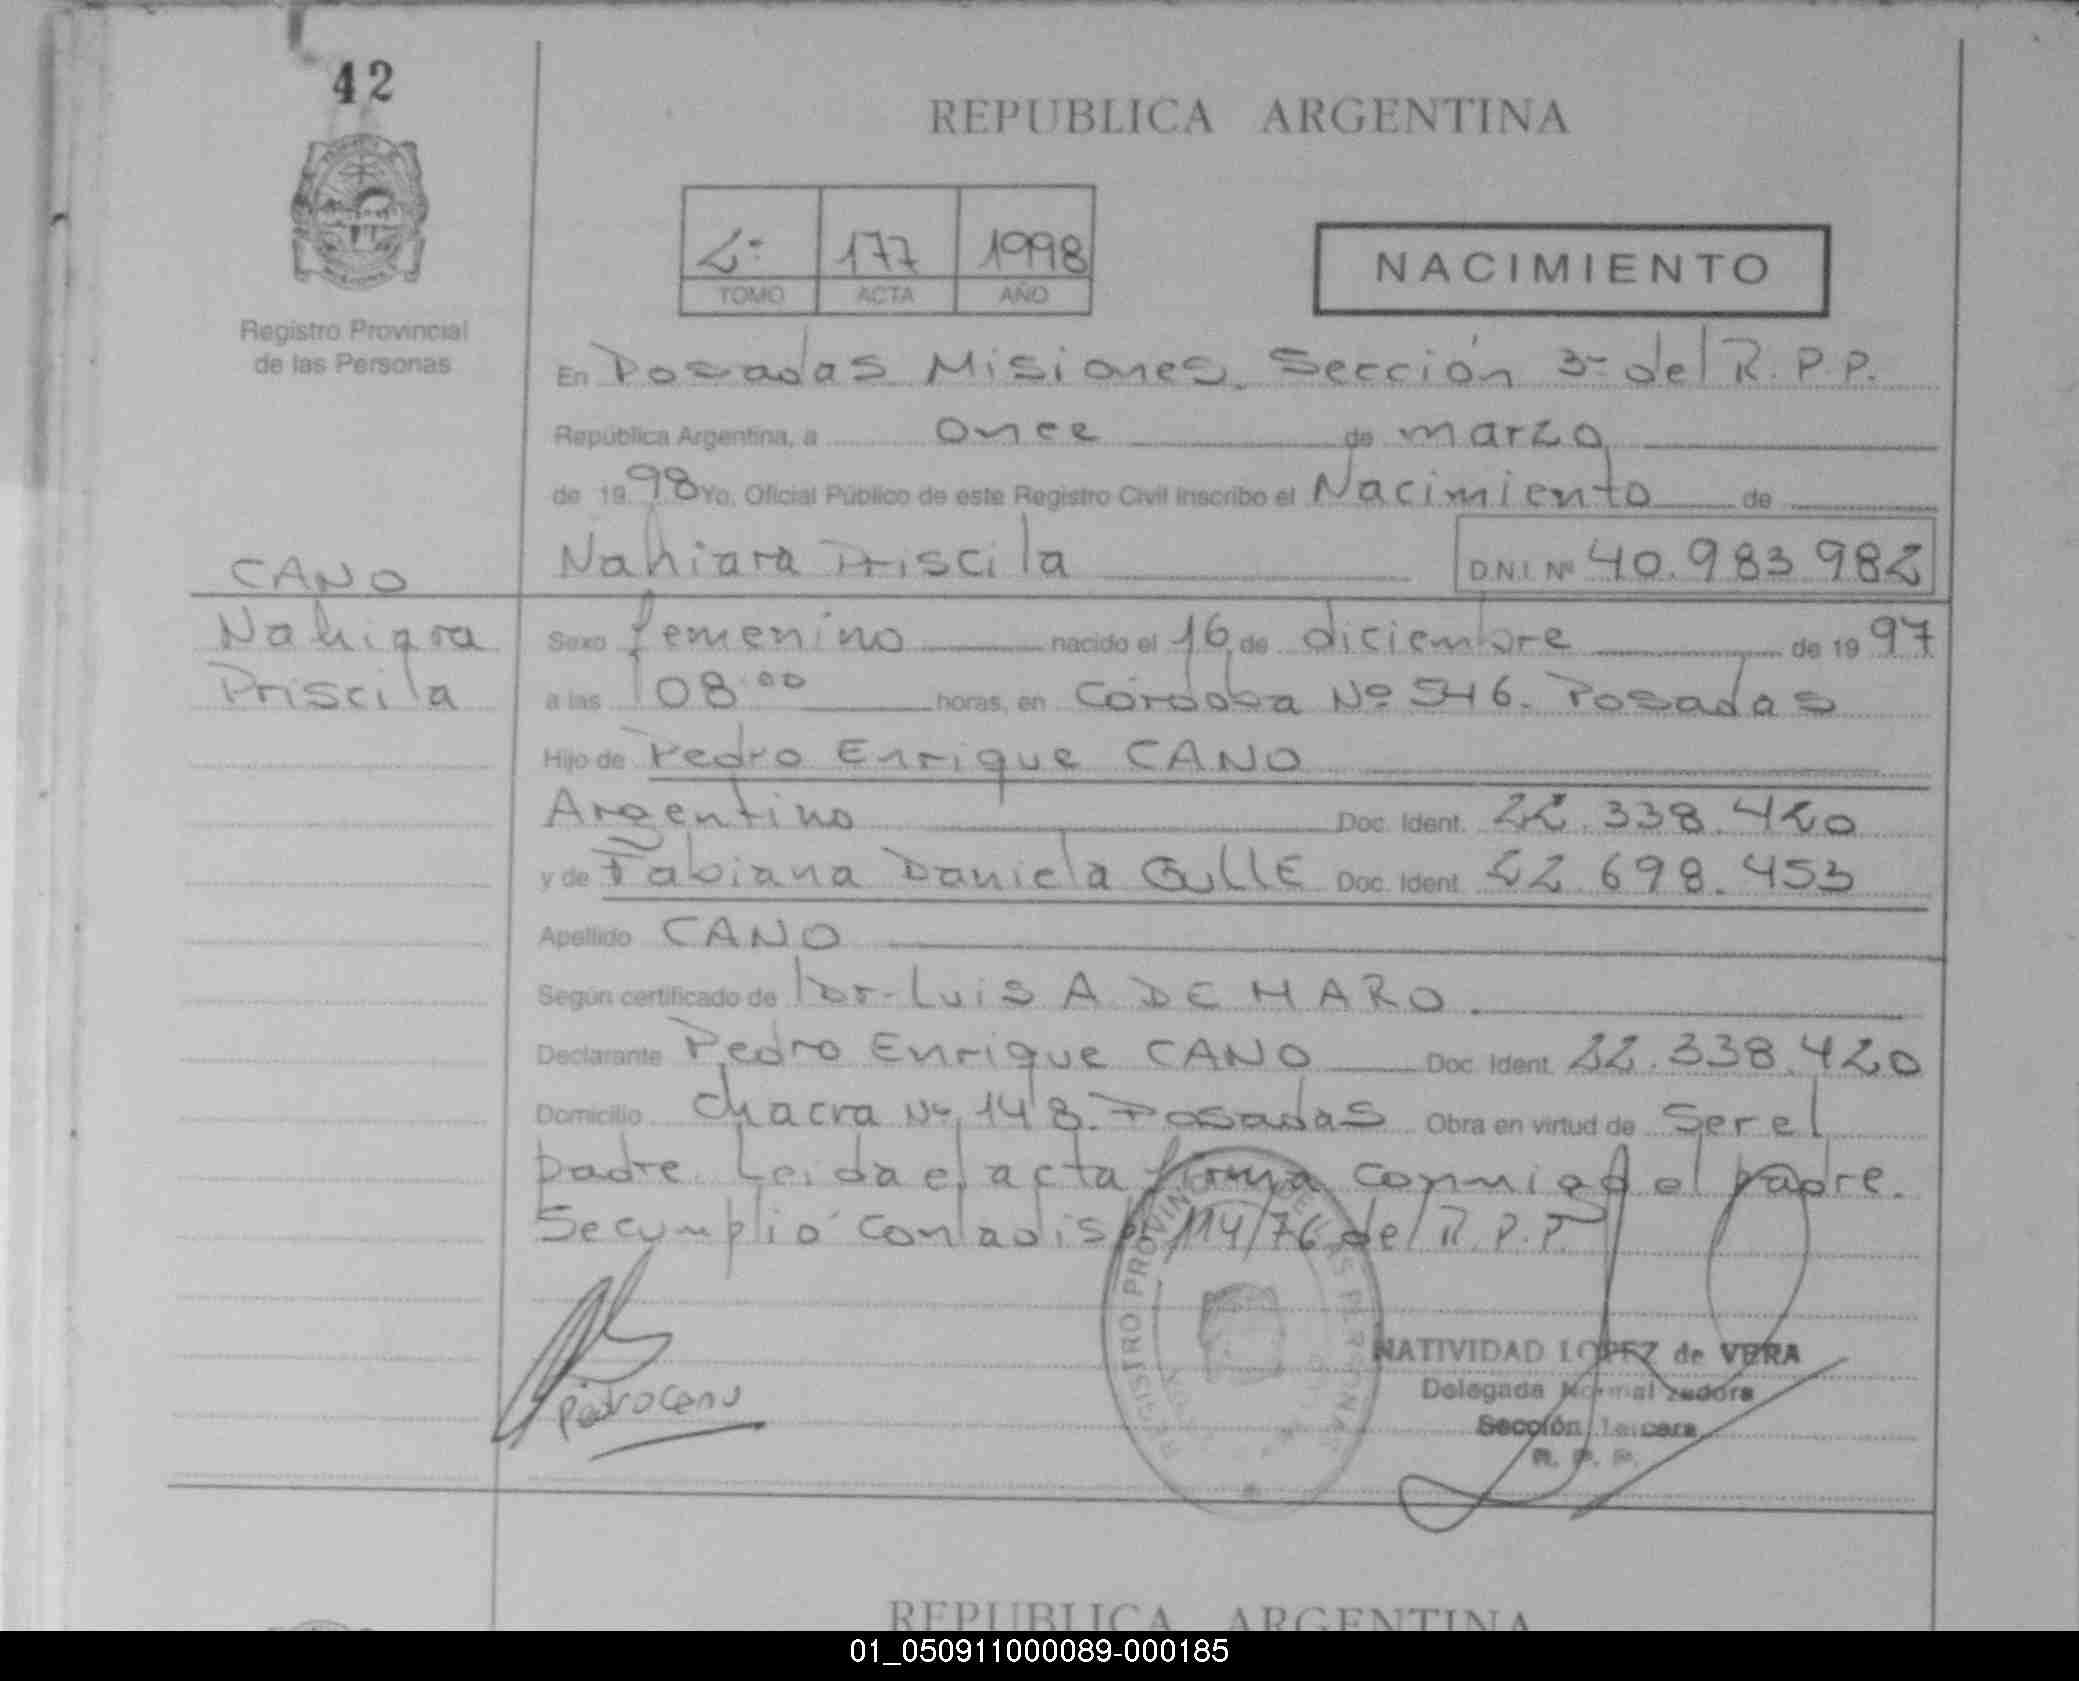 42
REPUBLICA ARGENTINA
2º 177 1998
TOMO ACTA AÑO
NACIMIENTO
Registro Provincial
de las Personas
En Posadas Misiones. Sección 3ª del R.P.P.
República Argentina, a once de marzo
de 1998 Yo, Oficial Público de este Registro Civil inscribo el Nacimiento de
Nahiara Priscila D.N.I. Nº 40.983.982
CANO
Nahiara
Priscila
Sexo femenino nacido el 16 de diciembre de 1997
a las 08:00 horas, en Córdoba Nº 546. Posadas
Hijo de Pedro Enrique CANO
Argentino Doc. Ident. 22.338.420
y de Fabiana Daniela Doc. Ident. 22.698.453
Apellido CANO
Según certificado de Dr. Luis A DE HARO
Declarante Pedro Enrique CANO Doc. Ident. 22.338.420
Domicilio Chacra Nº 148. Posadas Obra en virtud de Ser el
padre. Leida el acta firma conmigo el padre.
Se cumplió con la disp. 114/76 del R.P.P.
Pedro Cano
REGISTRO PROVINCIAL DE LAS PERSONAS
NATIVIDAD LOPEZ de VERA
Delegada Normalizadora
Sección Tercera
R. P. P.
REPUBLICA ARGENTINA
01_050911000089-000185